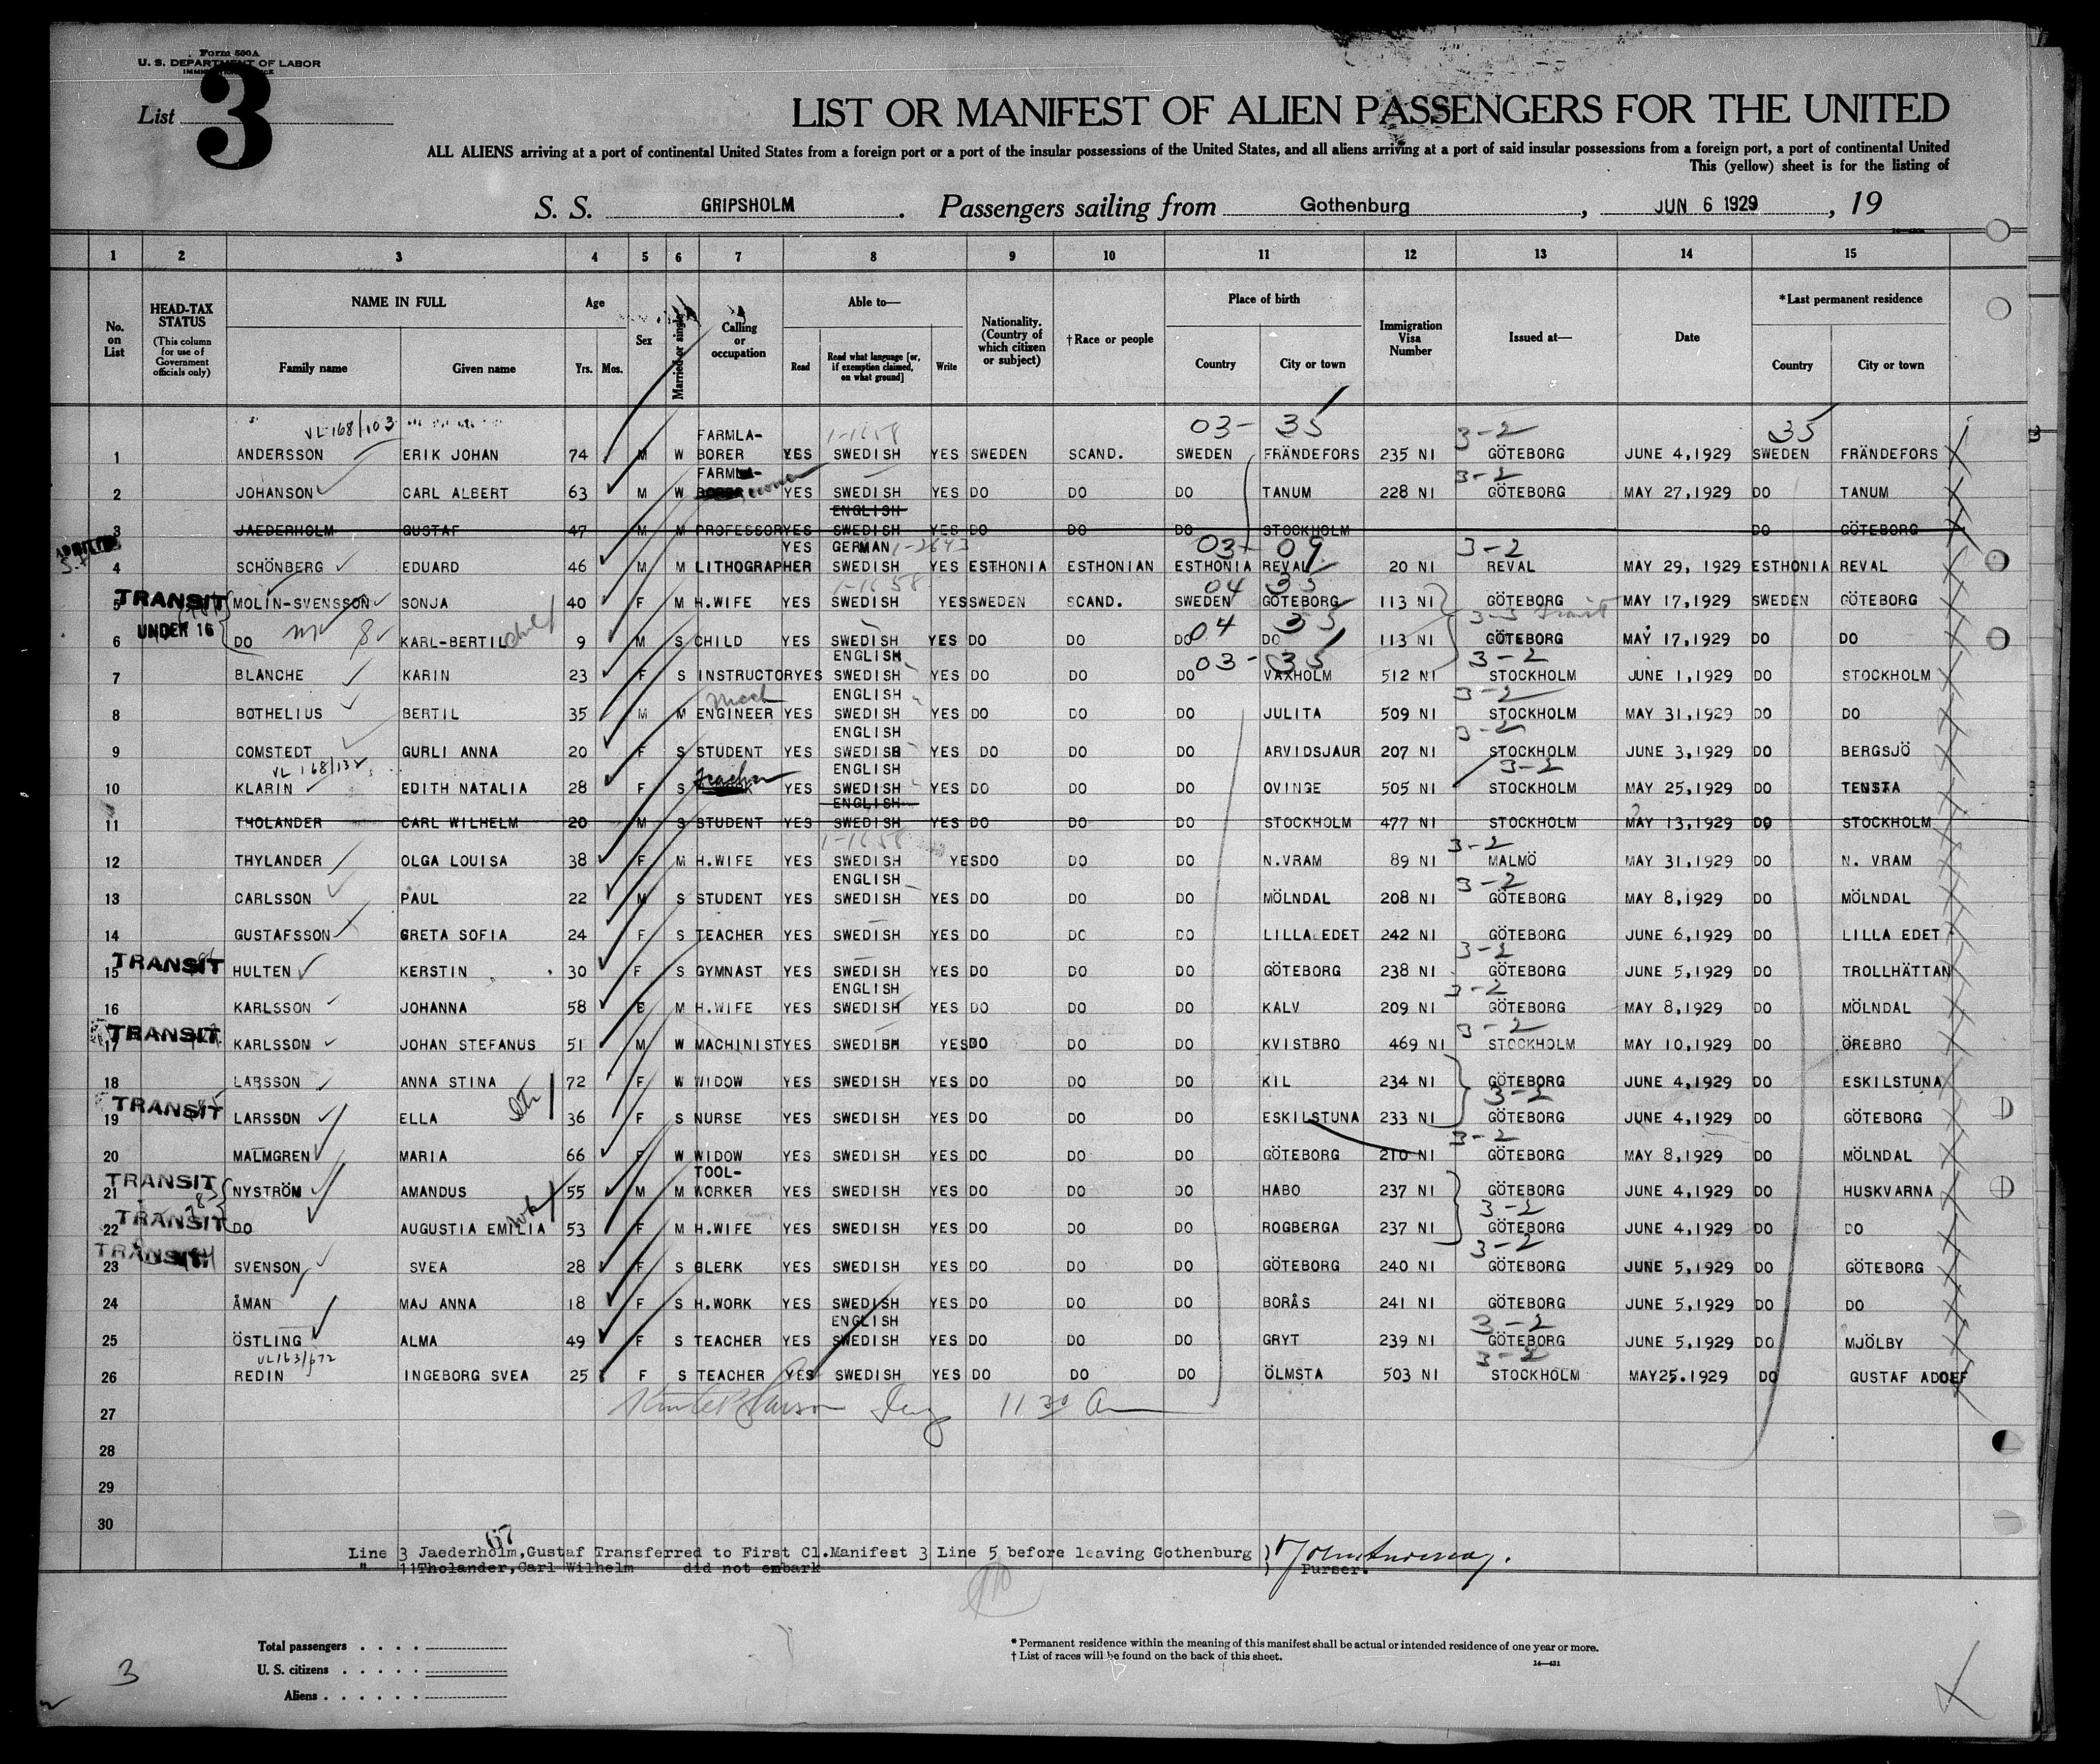 Form 500A
U. S. DEPARTMENT OF LABOR
List 3
LIST OR MANIFEST OF ALIEN PASSENGERS FOR THE UNITED
ALL ALIENS arriving at a port of continental United States from a foreign port or a port of the insular possessions of the United States, and all aliens arriving at a port of said insular possessions from a foreign port, a port of continental United
This (yellow) sheet is for the listing of
S. S. GRIPSHOLM. Passengers sailing from Gothenburg, JUN 6 1929, 19
1 2 3 4 5 6 7 8 9 10 11 12 13 14 15
No. on List
HEAD-TAX STATUS (This column for use of Government officials only)
NAME IN FULL Family name Given name
Age Yrs. Mos.
Sex
Married or single
Calling or occupation
Able to— Read Read what language [or, if exemption claimed, on what ground] Write
Nationality. (Country of which citizen or subject)
†Race or people
Place of birth Country City or town
Immigration Visa Number
Issued at—
Date
*Last permanent residence Country City or town
VL 168/103 1-1658 03- 35 3-2 35
1 ANDERSSON ERIK JOHAN 74 M W FARMLA-BORER YES SWEDISH YES SWEDEN SCAND. SWEDEN FRÄNDEFORS 235 NI GÖTEBORG JUNE 4,1929 SWEDEN FRÄNDEFORS
3-2
2 JOHANSON CARL ALBERT 63 M W FARM YES SWEDISH YES DO DO DO TANUM 228 NI GÖTEBORG MAY 27,1929 DO TANUM
3 JAEDERHOLM GUSTAF 47 M M PROFESSOR YES ENGLISH SWEDISH YES DO DO DO STOCKHOLM DO GÖTEBORG
1-2643 03- 09 3-2
4 SCHÖNBERG EDUARD 46 M M LITHOGRAPHER YES GERMAN SWEDISH YES ESTHONIA ESTHONIAN ESTHONIA REVAL 20 NI REVAL MAY 29, 1929 ESTHONIA REVAL
1-1658 04 35
TRANSIT 5 MOLIN-SVENSSON SONJA 40 F M H.WIFE YES SWEDISH YES SWEDEN SCAND. SWEDEN GÖTEBORG 113 NI GÖTEBORG MAY 17,1929 SWEDEN GÖTEBORG
04 35 3-3 Transit
UNDER 16 6 DO KARL-BERTIL 9 M S CHILD YES SWEDISH YES DO DO DO DO 113 NI GÖTEBORG MAY 17,1929 DO DO
03- 35 3-2
7 BLANCHE KARIN 23 F S INSTRUCTOR YES ENGLISH SWEDISH YES DO DO DO VAXHOLM 512 NI STOCKHOLM JUNE 1,1929 DO STOCKHOLM
Mech 3-2
8 BOTHELIUS BERTIL 35 M M ENGINEER YES ENGLISH SWEDISH YES DO DO DO JULITA 509 NI STOCKHOLM MAY 31,1929 DO DO
3-2
9 COMSTEDT GURLI ANNA 20 F S STUDENT YES ENGLISH SWEDISH YES DO DO DO ARVIDSJAUR 207 NI STOCKHOLM JUNE 3,1929 DO BERGSJÖ
VL 168/132 3-2
10 KLARIN EDITH NATALIA 28 F S Teacher YES ENGLISH SWEDISH YES DO DO DO OVINGE 505 NI STOCKHOLM MAY 25,1929 DO TENSTA
11 THOLANDER CARL WILHELM 20 M S STUDENT YES ENGLISH SWEDISH YES DO DO DO STOCKHOLM 477 NI STOCKHOLM MAY 13,1929 DO STOCKHOLM
1-1658 3-2
12 THYLANDER OLGA LOUISA 38 F M H.WIFE YES SWEDISH YES DO DO DO N.VRAM 89 NI MALMÖ MAY 31,1929 DO N. VRAM
3-2
13 CARLSSON PAUL 22 M S STUDENT YES ENGLISH SWEDISH YES DO DO DO MÖLNDAL 208 NI GÖTEBORG MAY 8,1929 DO MÖLNDAL
14 GUSTAFSSON GRETA SOFIA 24 F S TEACHER YES SWEDISH YES DO DO DO LILLA EDET 242 NI GÖTEBORG JUNE 6,1929 DO LILLA EDET
3-2
TRANSIT 15 HULTEN KERSTIN 30 F S GYMNAST YES SWEDISH YES DO DO DO GÖTEBORG 238 NI GÖTEBORG JUNE 5,1929 DO TROLLHÄTTAN
3-2
16 KARLSSON JOHANNA 58 F M H.WIFE YES ENGLISH SWEDISH YES DO DO DO KALV 209 NI GÖTEBORG MAY 8,1929 DO MÖLNDAL
3-2
TRANSIT 17 KARLSSON JOHAN STEFANUS 51 M W MACHINIST YES SWEDISH YES DO DO DO KVISTBRO 469 NI STOCKHOLM MAY 10,1929 DO ÖREBRO
18 LARSSON ANNA STINA 72 F W WIDOW YES SWEDISH YES DO DO DO KIL 234 NI GÖTEBORG JUNE 4,1929 DO ESKILSTUNA
3-2
TRANSIT 19 LARSSON ELLA 36 F S NURSE YES SWEDISH YES DO DO DO ESKILSTUNA 233 NI GÖTEBORG JUNE 4,1929 DO GÖTEBORG
3-2
20 MALMGREN MARIA 66 F W WIDOW YES SWEDISH YES DO DO DO GÖTEBORG 210 NI GÖTEBORG MAY 8,1929 DO MÖLNDAL
TRANSIT 21 NYSTRÖM AMANDUS 55 M M TOOL-WORKER YES SWEDISH YES DO DO DO HABO 237 NI GÖTEBORG JUNE 4,1929 DO HUSKVARNA
3-2
TRANSIT 22 DO AUGUSTIA EMILIA 53 F M H.WIFE YES SWEDISH YES DO DO DO ROGBERGA 237 NI GÖTEBORG JUNE 4,1929 DO DO
3-2
TRANSIT 23 SVENSON SVEA 28 F S CLERK YES SWEDISH YES DO DO DO GÖTEBORG 240 NI GÖTEBORG JUNE 5,1929 DO GÖTEBORG
24 ÅMAN MAJ ANNA 18 F S H.WORK YES SWEDISH YES DO DO DO BORÅS 241 NI GÖTEBORG JUNE 5,1929 DO DO
3-2
25 ÖSTLING ALMA 49 F S TEACHER YES ENGLISH SWEDISH YES DO DO DO GRYT 239 NI GÖTEBORG JUNE 5,1929 DO MJÖLBY
VL163/672 3-2
26 REDIN INGEBORG SVEA 25 F S TEACHER YES SWEDISH YES DO DO DO ÖLMSTA 503 NI STOCKHOLM MAY25.1929 DO GUSTAF ADOLF
27 11 30 a
28
29
30
67
Line 3 Jaederholm,Gustaf Transferred to First Cl.Manifest 3 Line 5 before leaving Gothenburg )
" 11 Tholander,Carl Wilhelm did not embark ) Purser.
Total passengers . . . .
U. S. citizens . . . . .
Aliens . . . . . .
* Permanent residence within the meaning of this manifest shall be actual or intended residence of one year or more.
† List of races will be found on the back of this sheet.
14—431
3